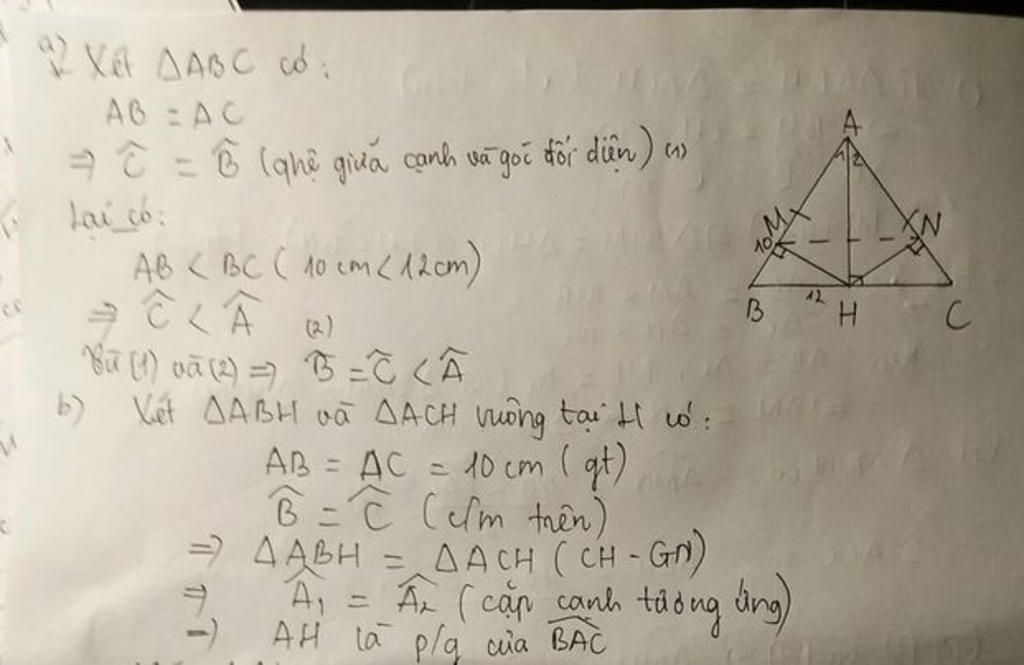 a) Xét ΔABC có:
AB = AC
⇒ Ĉ = B̂ (qhệ giữa cạnh và góc đối diện) (1)
Lại có:
AB < BC (10cm < 12cm)
⇒ Ĉ < Â (2)
Từ (1) và (2) ⇒ B̂ = Ĉ < Â
b) Xét ΔABH và ΔACH vuông tại H có:
AB = AC = 10cm (gt)
B̂ = Ĉ (c/m trên)
⇒ ΔABH = ΔACH (CH - GN)
⇒ Â₁ = Â₂ (cặp cạnh tương ứng)
→ AH là p/g của B̂AC
A
1 2
M N
10
12
B H C